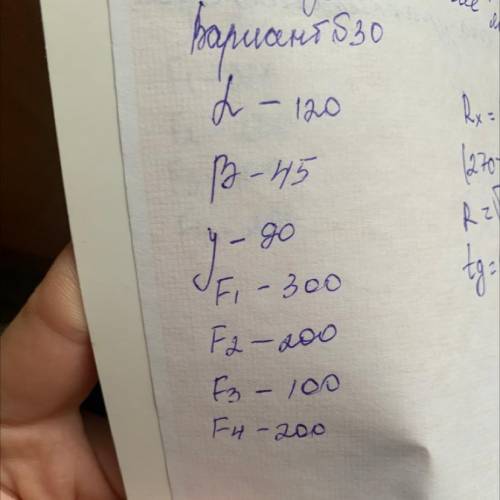 Вариант 530
α - 120
β - 45
γ - 90
F1 - 300
F2 - 200
F3 - 100
F4 - 200
Rx =
R =
tg =